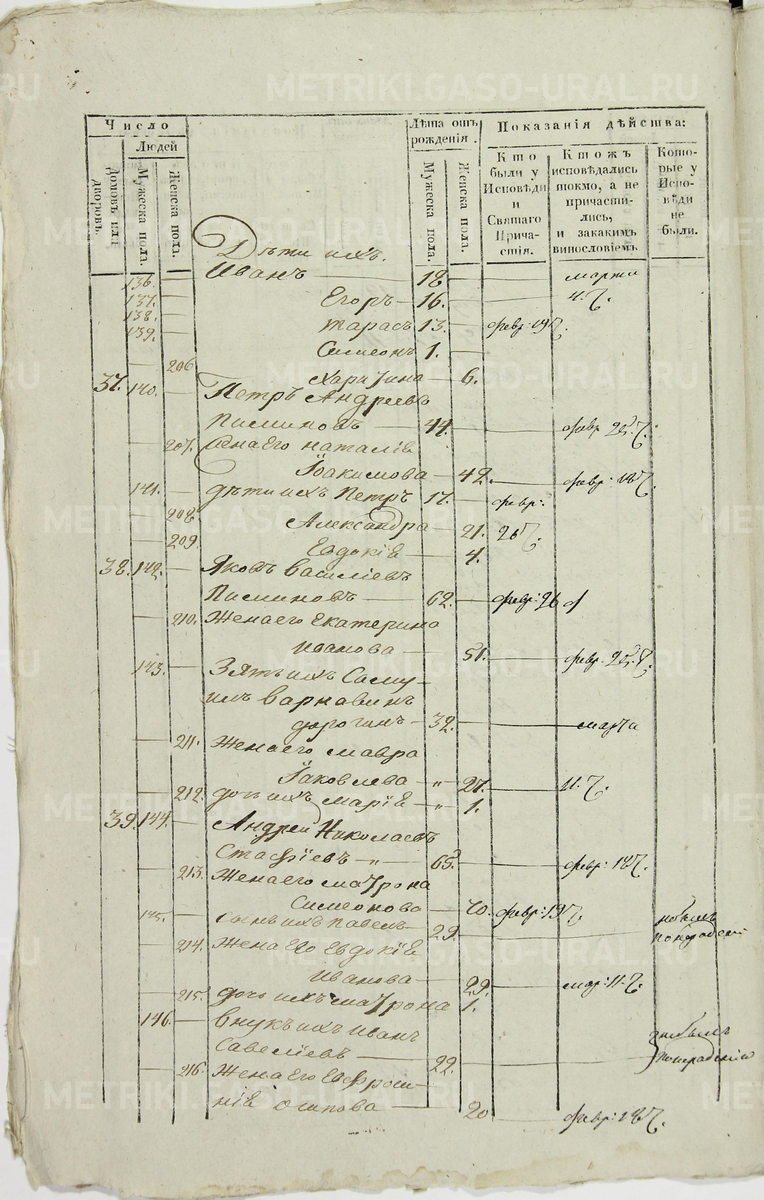 METRIKI.GASO-URAL.RU
Число
Людей
Домовъ или дворовъ.
Мужеска пола.
Женска пола.
Лѣта отъ рожденія.
Мужеска пола.
Женска пола.
Показанія дѣйства:
Кто были у Исповѣди и Святаго Прича-стія.
Ктожъ исповѣдались токмо, а не причасти-лись, и закакимъ винословіемъ.
Кото-рые у Испо-вѣди не были.
Дѣти ихъ.
136. Иванъ 18 марта
137. Егоръ 16. 4.
138. Тарасъ 13. февр: 19
139. Симеонъ 1.
206 Харитина 6.
37. 140. Петръ Андреевъ
44. февр
207. жена его наталія
Іоакимова 42. февр: 18
141. дѣти ихъ Петръ 17. февр:
208 Александра 21. 26
209. Евдокія 4.
38. 142. Яковъ Василіевъ
62 февр: 26
210. Жена его Екатерина
Иванова 51. февр:
143. Зять ихъ Саму-
илъ Варнавинъ
32. марта
211. Жена его мавра
Іаковлева 27. 11.
212. дочь ихъ марія 1.
39. 144. Андрей Николаевъ
65. февр: 18
213. Жена его матрона
Симеонова февр: 19
145. сынъ ихъ Павелъ 29.
214. Жена его Евдокія
Иванова 29. мар: 11.
215. дочь ихъ матрона 1.
146. Внукъ ихъ иванъ
Савеліевъ 22.
216. Жена его Евфроси-
нія осипова 20 февр: 18